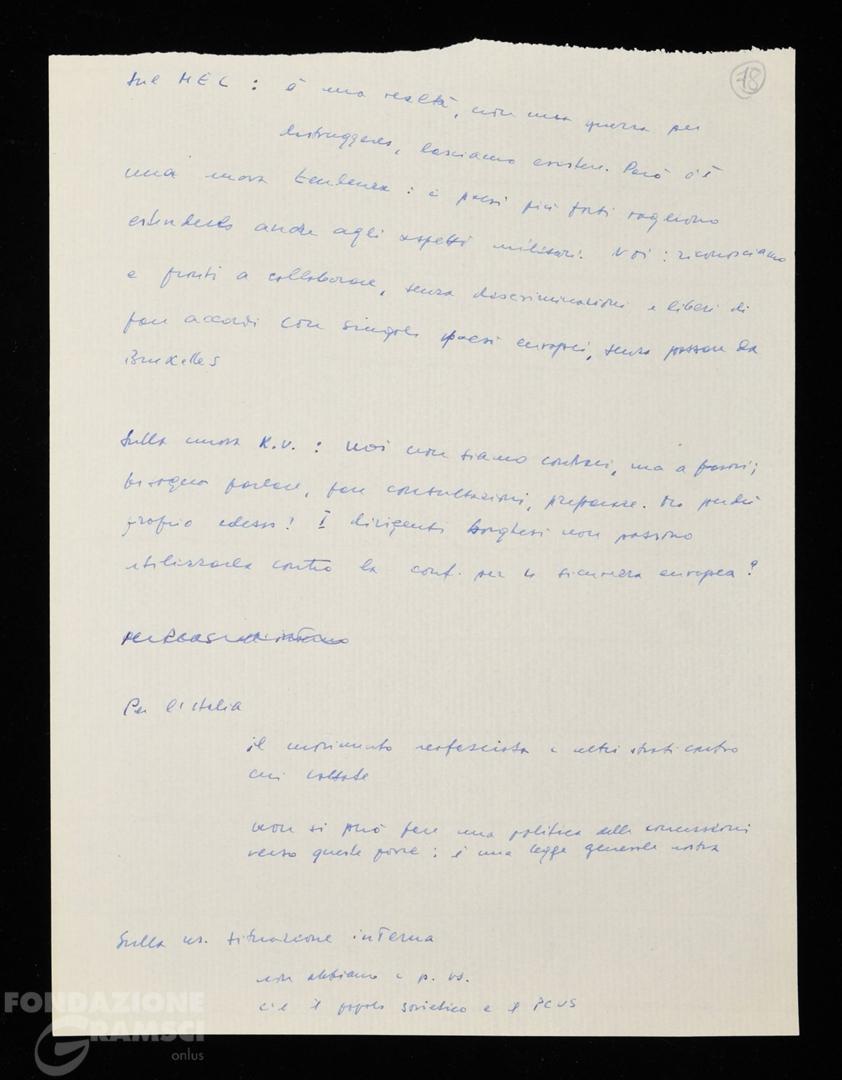 78
Sul MEC : è una realtà, non una guerra per
distruggerlo, lasciamo esistere. Però c'è
una nuova tendenza : i paesi più forti vogliono
estenderlo anche agli aspetti militari. Noi : riconosciamo
e pronti a collaborare, senza discriminazioni e liberi di
fare accordi con singoli paesi europei, senza passare da
Bruxelles
Sulla nuova K.V. : noi non siamo contrari, ma a favore;
bisogna parlare, fare consultazioni, preparare. Ma perché
proprio adesso! I dirigenti borghesi non possono
utilizzarla contro la conf. per la sicurezza europea?
Per l'Italia
il movimento neofascista e altri strati contro
cui lottate
non si può fare una politica delle concessioni
verso queste forze : è una legge generale nostra
Sulla ns. situazione interna
non abbiamo i p. vs.
c'è il popolo sovietico e il PCUS
FONDAZIONE
GRAMSCI
onlus